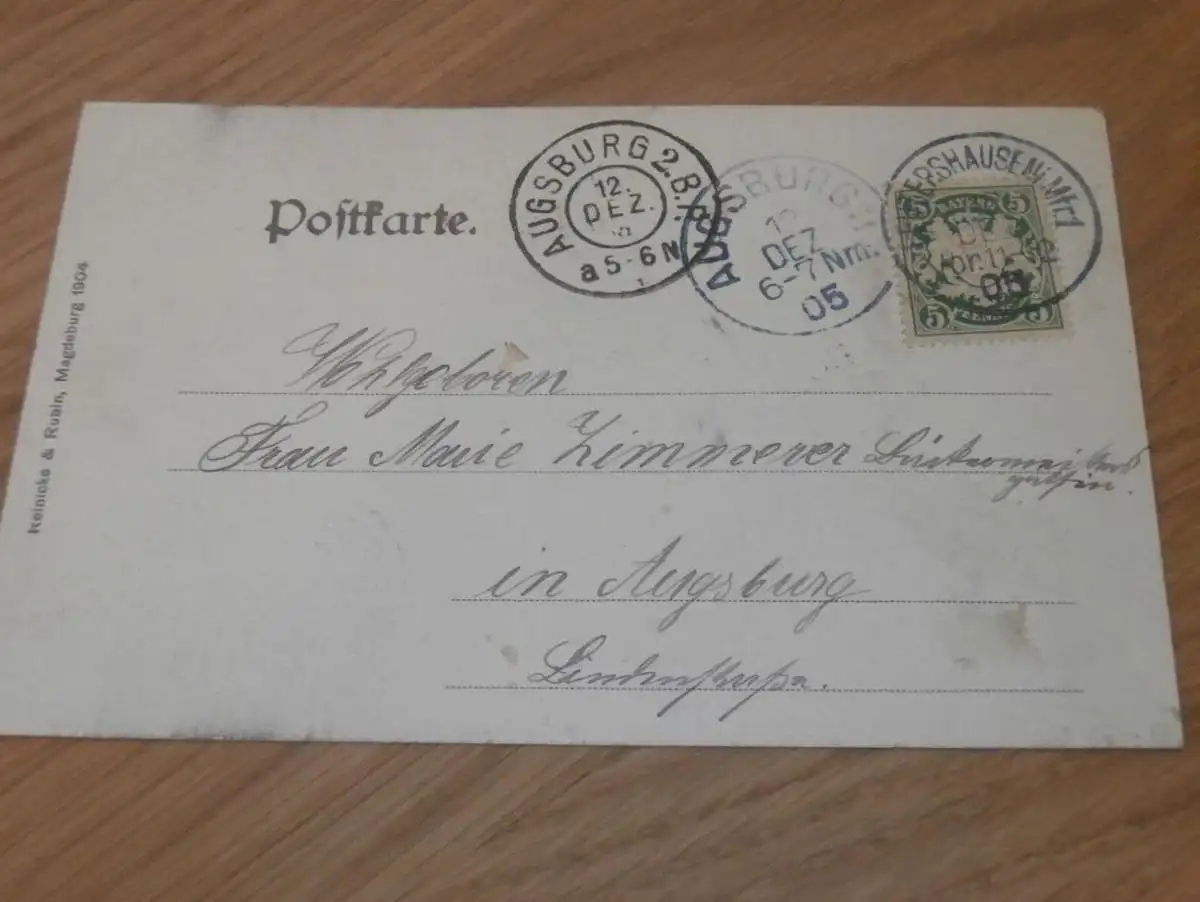 Postkarte.
AUGSBURG 2. B.P.
12.
DEZ.
a 5-6 N
AUGSBURG
12
DEZ
6-7 Nm.
05
ERSHAUSEN i. Mfrl
DEZ
Vor. 11-
05
5 5
5 5
Reinicke & Rubin, Magdeburg 1904
Whlgeboren
Frau Marie Zimmerer
gattin.
in Augsburg
Lindenstraße.